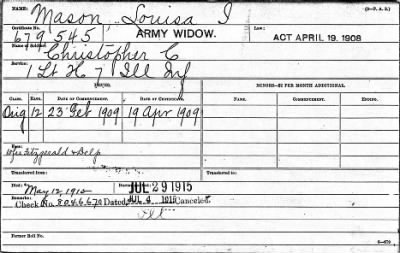 NAME: Mason, Louisa I (3-P. A. R.)
Certificate No. LAW:
679,545 ARMY WIDOW. ACT APRIL 19, 1908
Name of Soldier:
Christopher C
Service:
1 Lt H 7 Ill Inf
MINORS—$2 PER MONTH ADDITIONAL.
CLASS. RATE. DATE OF COMMENCEMENT. DATE OF CERTIFICATE. NAMES. COMMENCEMENT. ENDING.
Orig 12 23 Feb 1909 19 Apr 1909
Fitzgerald & Delp
Transferred from Transferred to
Died: May 12, 1915 JUL 29 1915
Remarks: Check No. 8046670 Dated JUL 4 1915 Canceled.
Former Roll No. 3—679